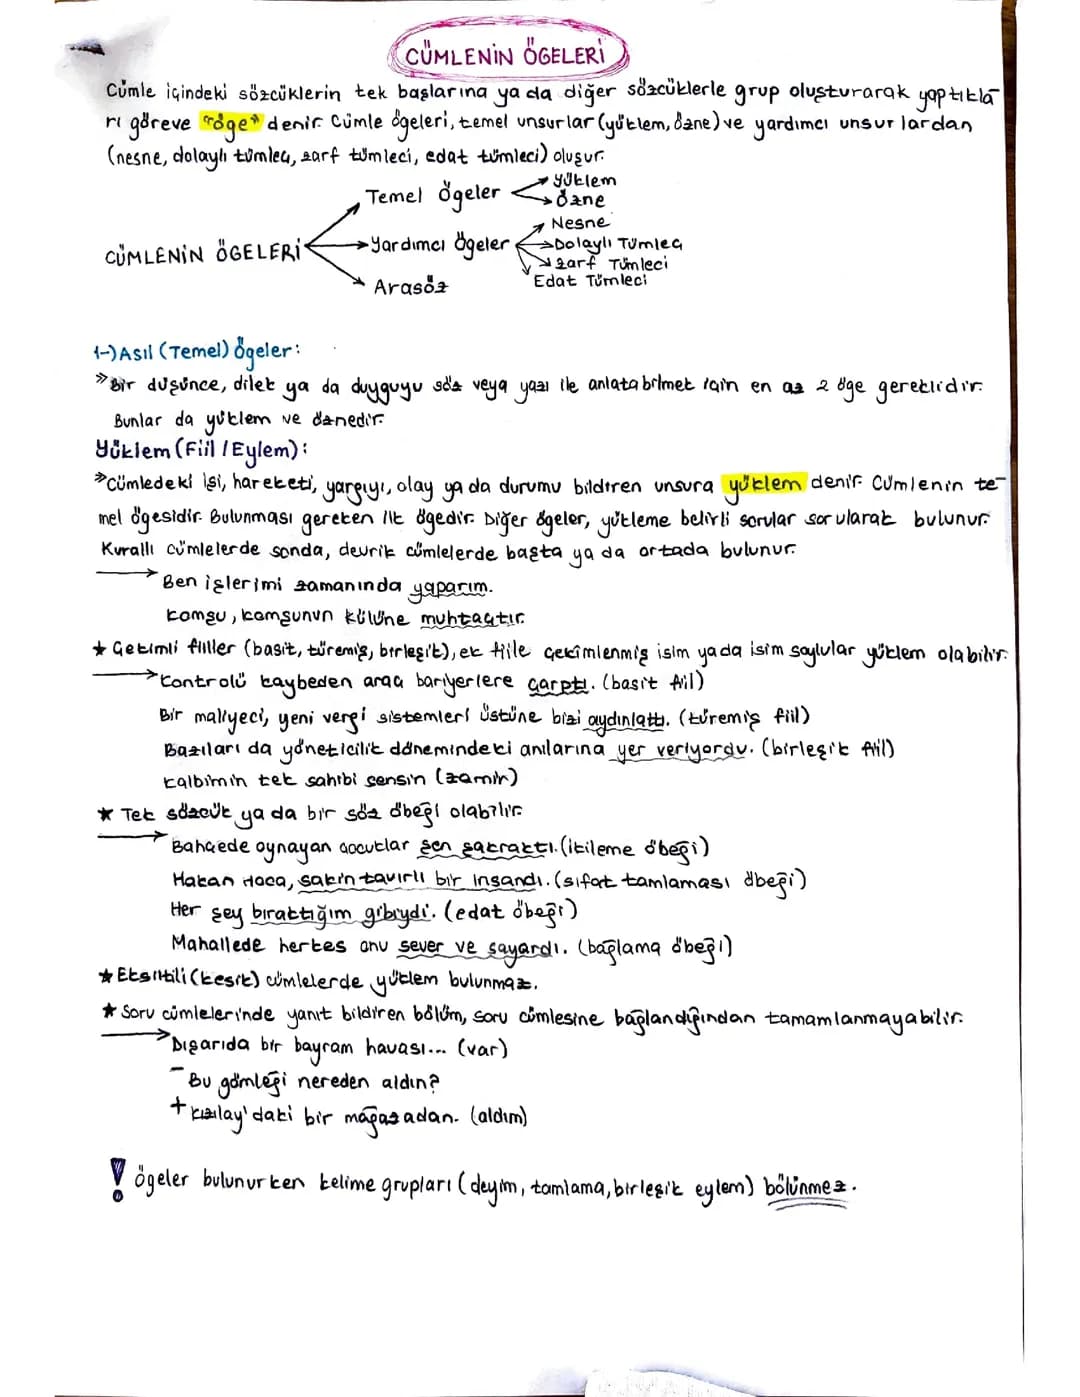 CÜMLENİN ÖGELERİ
Cümle içindeki sözcüklerin tek başlarına ya da diğer sözcüklerle grup oluşturarak yaptıkla
rı göreve "öge" denir. Cümle ögeleri, temel unsurlar (yüklem, özne) ve yardımcı unsurlardan
(nesne, dolaylı tümleç, zarf tümleci, edat tümleci) oluşur.
CÜMLENİN ÖGELERİ
Temel Ögeler
Yüklem
Özne
Yardımcı Ögeler
Nesne
Dolaylı Tümleç
Zarf Tümleci
Edat Tümleci
Arasöz
1-) Asıl (Temel) Ögeler:
» Bir düşünce, dilek ya da duyguyu söz veya yazı ile anlatabilmek için en az 2 öge gereklidir.
Bunlar da yüklem ve öznedir.
Yüklem (Fiil / Eylem):
» Cümledeki işi, hareketi, yargıyı, olay ya da durumu bildiren unsura yüklem denir. Cümlenin te-
mel ögesidir. Bulunması gereken ilk ögedir. Diğer ögeler, yükleme belirli sorular sorularak bulunur.
Kurallı cümlelerde sonda, devrik cümlelerde başta ya da ortada bulunur.
→ Ben işlerimi zamanında yaparım.
Komşu, komşunun külüne muhtaçtır.
★ Çekimli fiiller (basit, türemiş, birleşik), ek fiile çekimlenmiş isim yada isim soylular yüklem olabilir.
→ Kontrolü kaybeden araç bariyerlere çarptı. (basit fiil)
Bir maliyeci, yeni vergi sistemleri üstüne bizi aydınlattı. (türemiş fiil)
Bazıları da yöneticilik dönemindeki anılarına yer veriyordu. (birleşik fiil)
Kalbimin tek sahibi sensin (zamir)
★ Tek sözcük ya da bir söz öbeği olabilir.
→ Bahçede oynayan çocuklar şen şakraktı. (ikileme öbeği)
Hakan Hoca, sakin tavırlı bir insandı. (sıfat tamlaması öbeği)
Her şey bıraktığım gibiydi. (edat öbeği)
Mahallede herkes onu sever ve sayardı. (bağlama öbeği)
★ Eksiltili (kesik) cümlelerde yüklem bulunmaz.
★ Soru cümlelerinde yanıt bildiren bölüm, soru cümlesine bağlandığından tamamlanmayabilir.
→ Dışarıda bir bayram havası... (var)
- Bu gömleği nereden aldın?
+ Kızılay'daki bir mağazadan. (aldım)
! Ögeler bulunurken kelime grupları (deyim, tamlama, birleşik eylem) bölünmez.